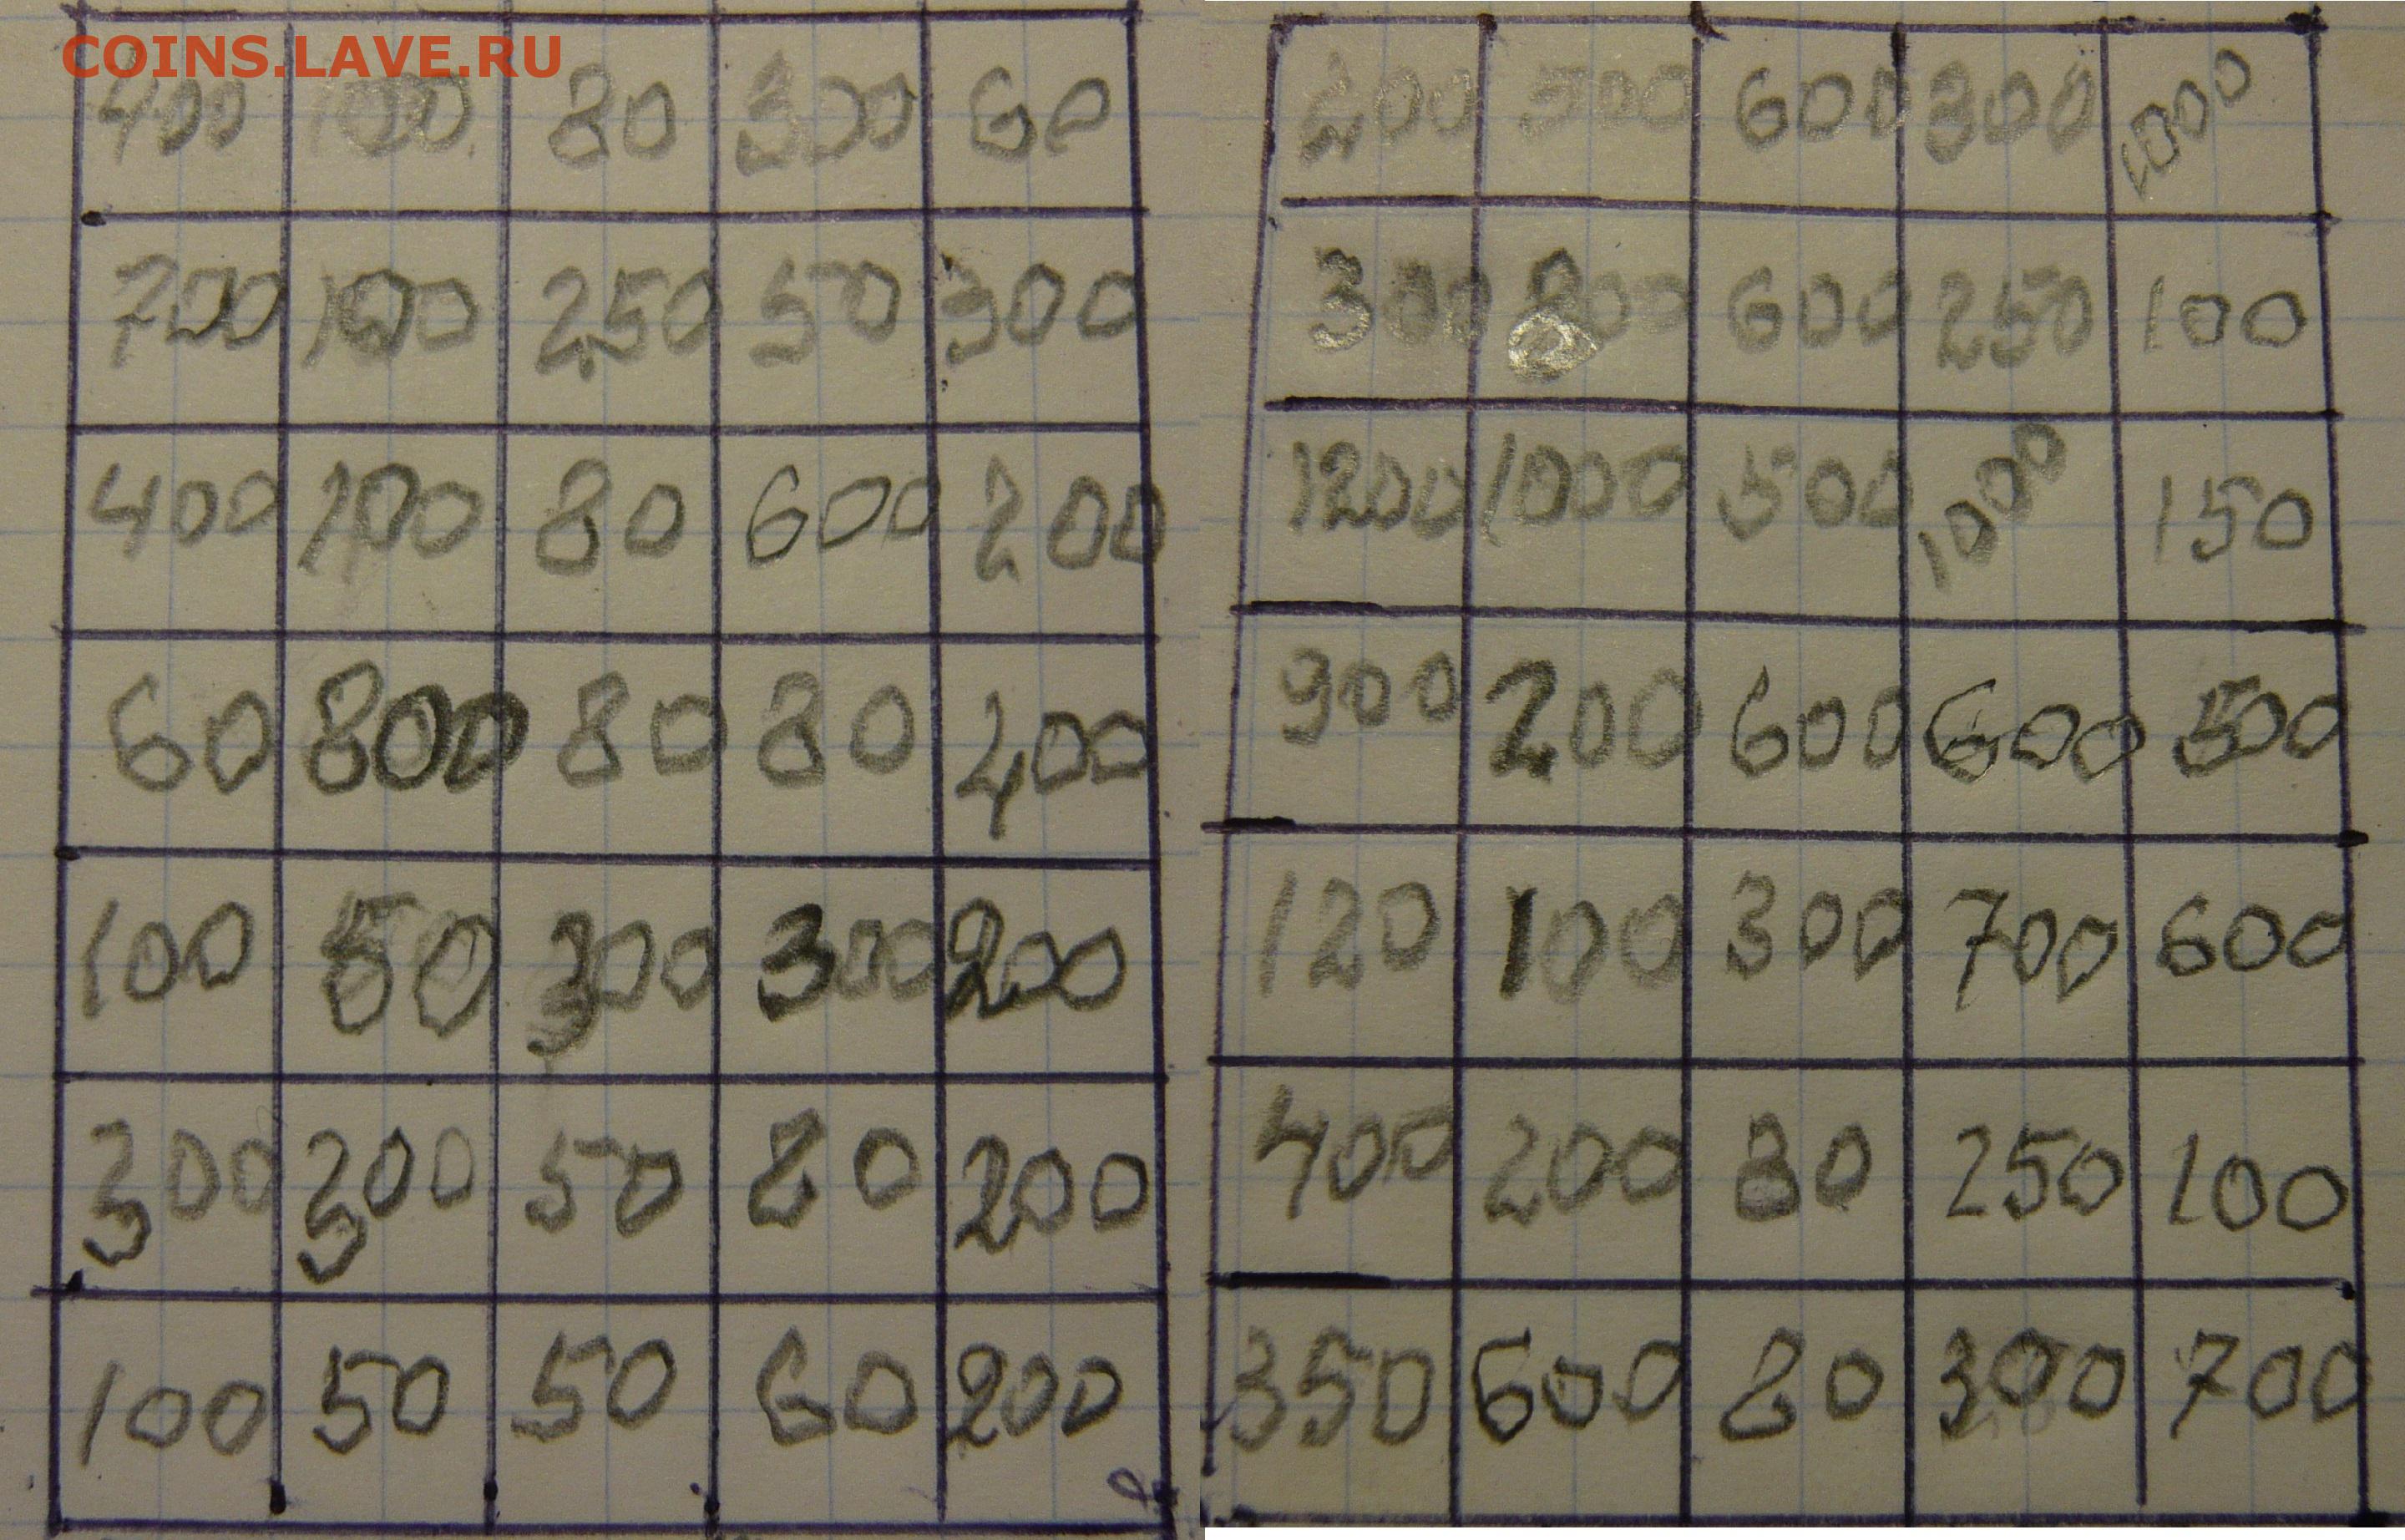 COINS.LAVE.RU
400 100 80 300 60
700 100 250 50 300
400 100 80 600 200
60 800 80 80 400
100 50 300 300 200
300 300 50 80 200
100 50 50 60 200
300 600 300 1000
300 800 600 250 100
1200 1000 500 1000 150
900 200 600 600 500
120 100 300 700 600
400 200 80 250 100
350 600 80 300 700